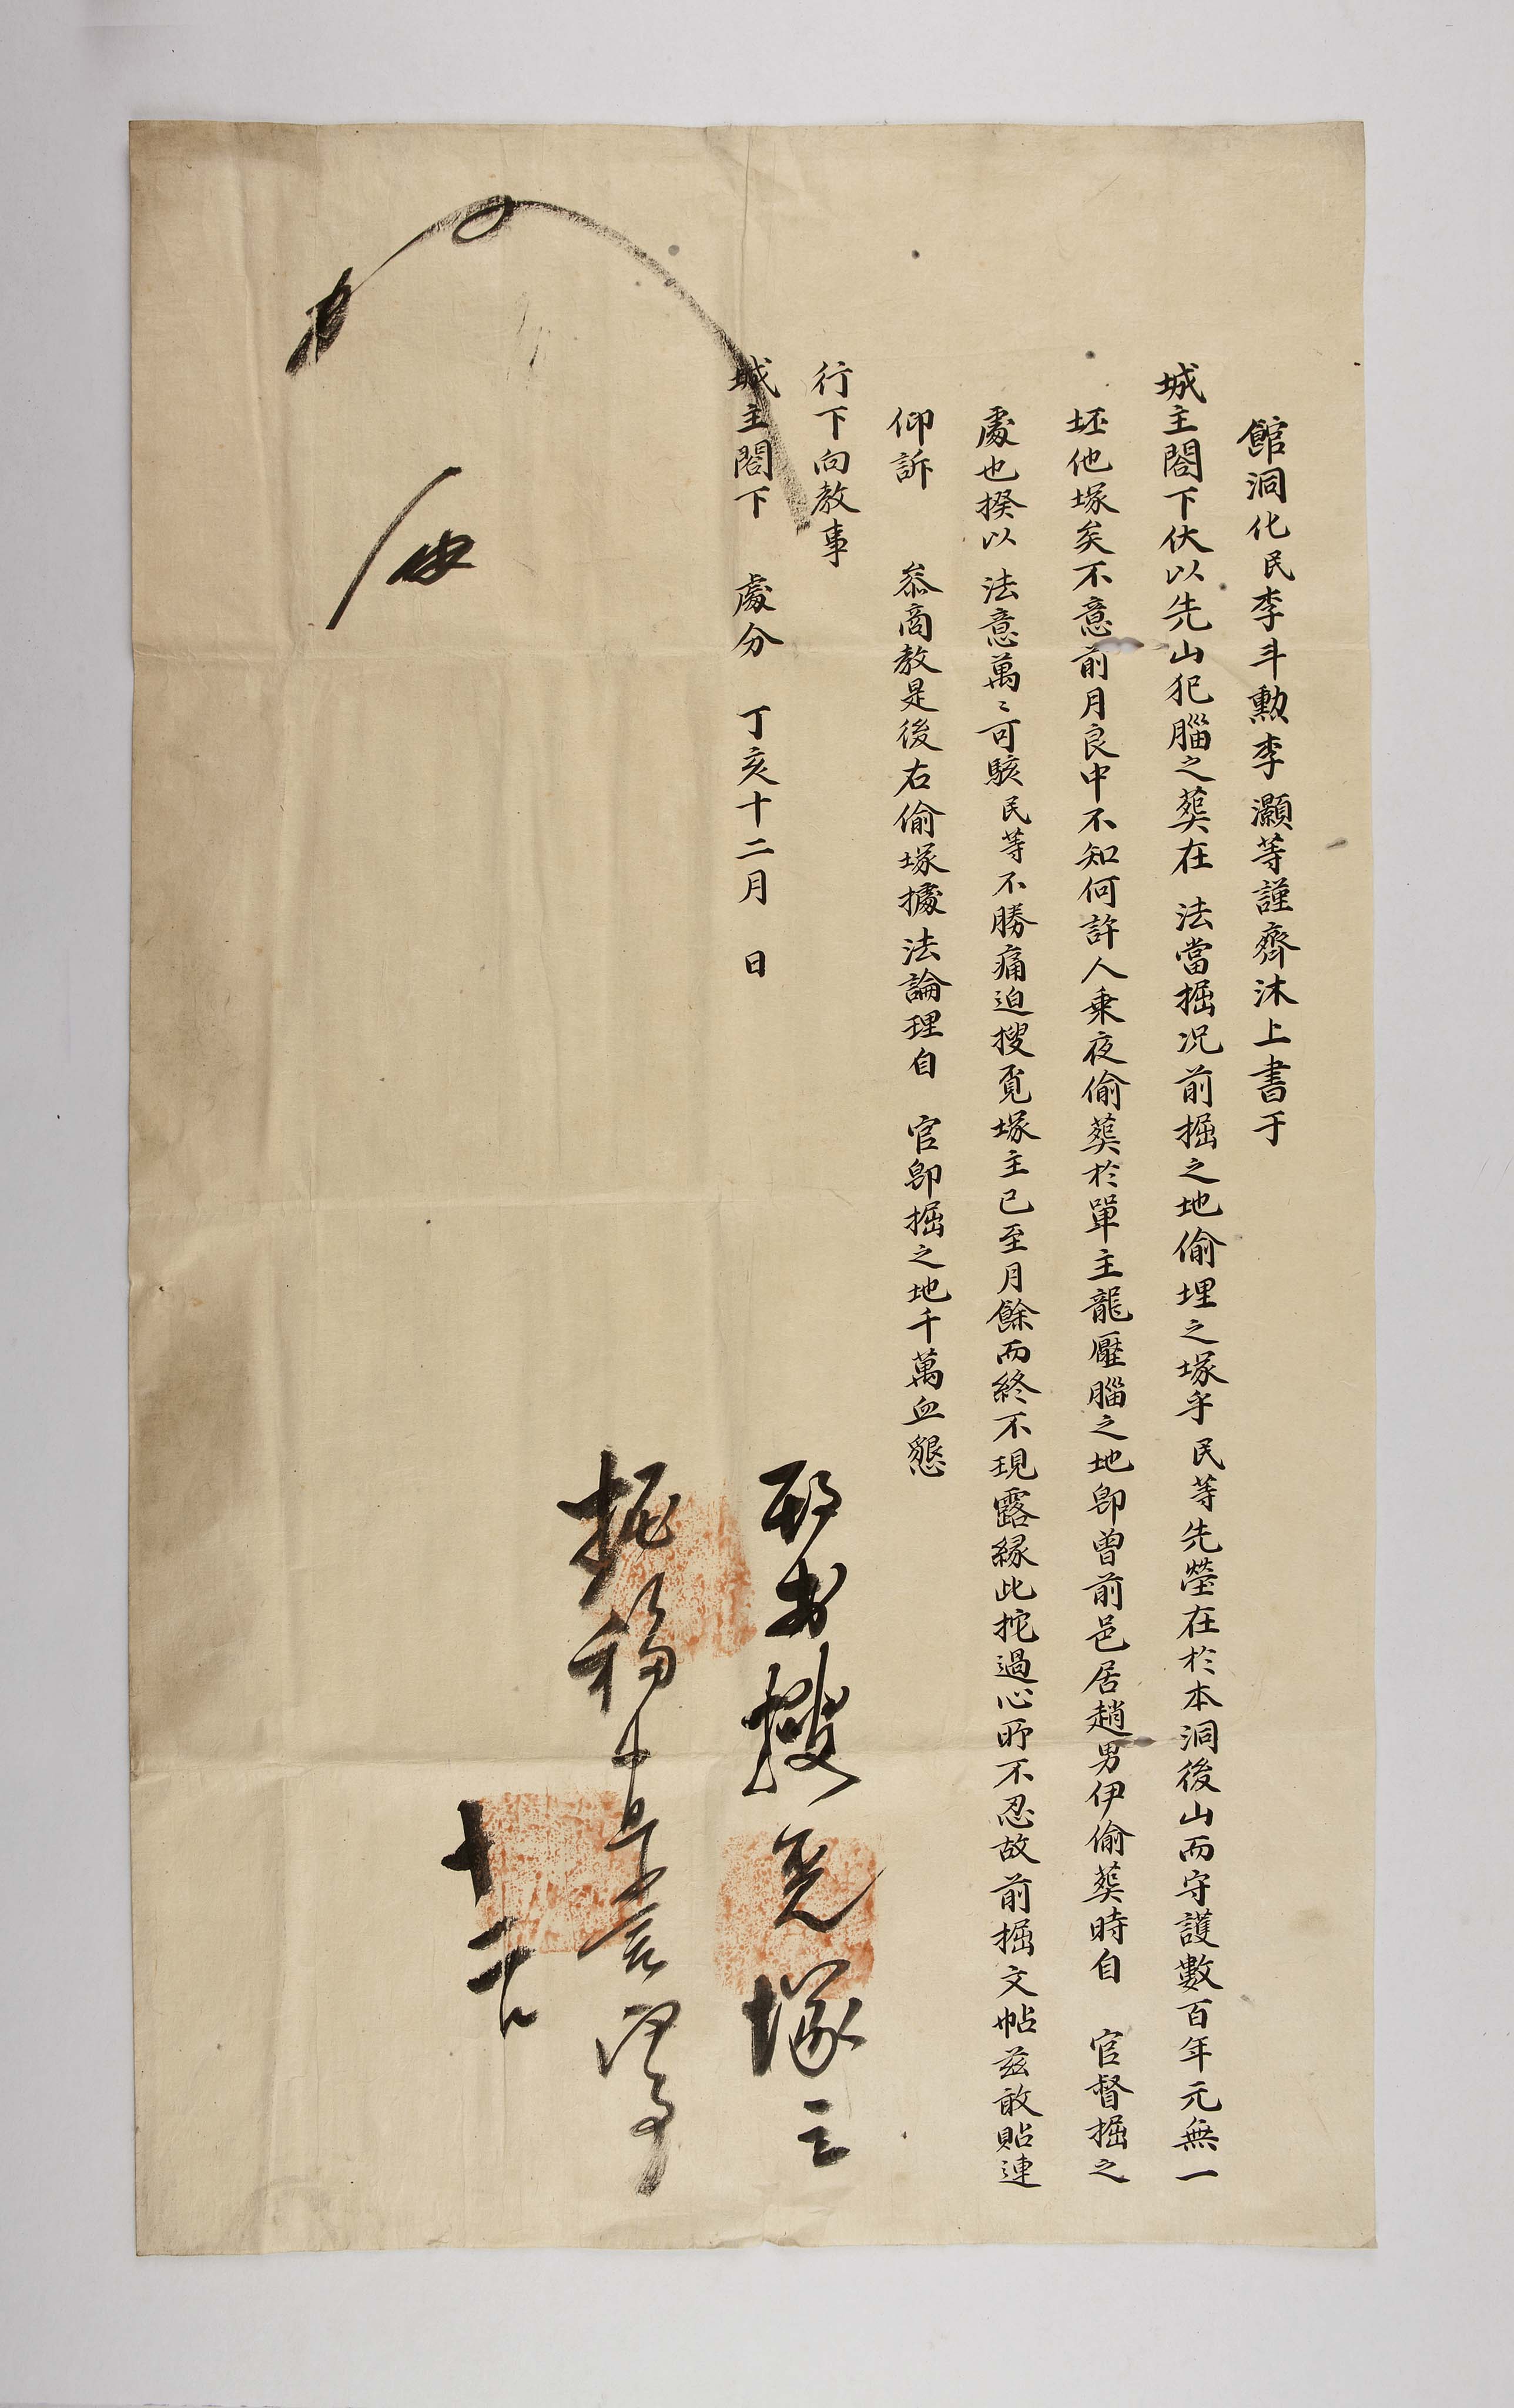 館洞化民李斗勲李灝等謹齊沐上書于
城主閤下伏以先山犯腦之葬在 法當掘况前掘之地偷埋之塚乎民等先塋在於本洞後山而守護數百年元無一
坯他塚矣不意前月良中不知何許人乗夜偷葬於單主龍壓腦之地卽曽前邑居趙男伊偷葬時自 官督掘之
處也揆以 法意萬〻可駭民等不勝痛迫搜覔塚主已至月餘而終不現露縁此挖過心所不忍故前掘文帖茲敢貼連
仰訴 叅商教是後右偷塚據法論理自 官卽掘之地千萬血懇
行下向教事
城主閤下 處分 丁亥十二月 日
搜覓塚主
掘移
十二